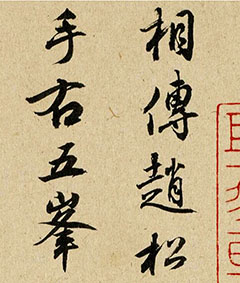 相傳趙松
手右五峯